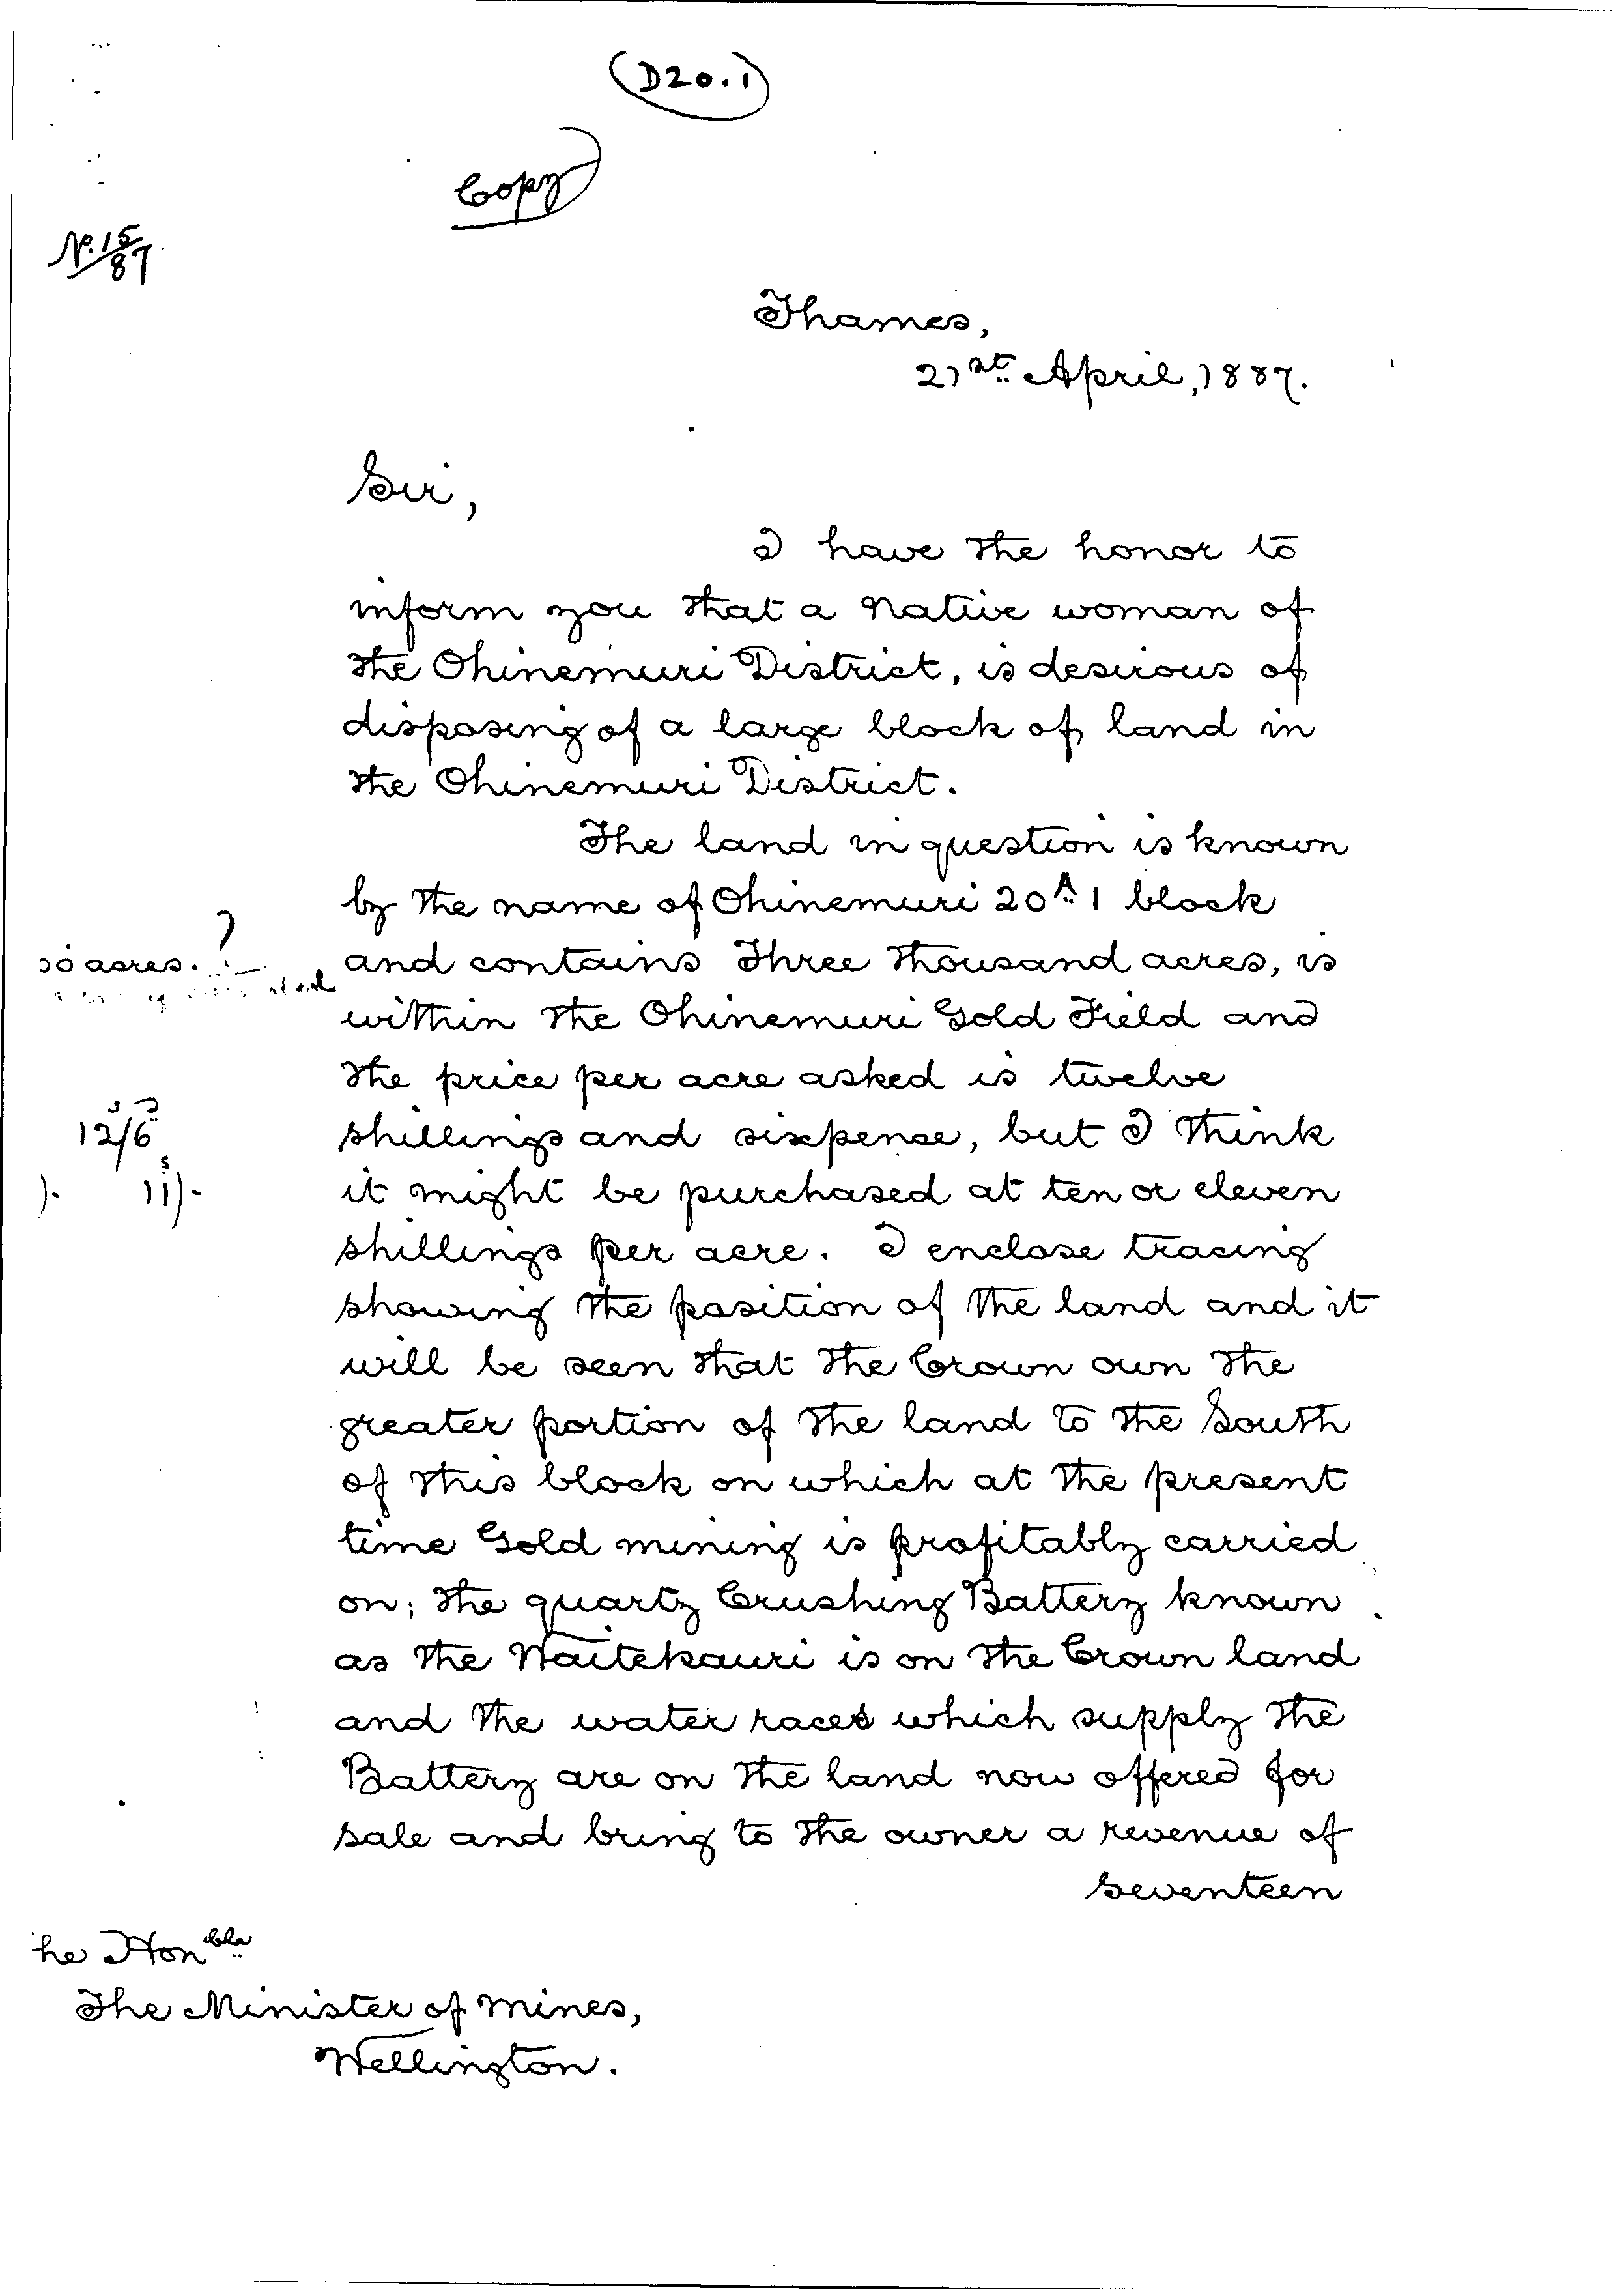 (D20.1)
Copy
No. 15/87
Thames,
21st April, 1887.
Sir,
I have the honor to
inform you that a native woman of
the Ohinemuri District, is desirous of
disposing of a large block of land in
the Ohinemuri District.
The land in question is known
by the name of Ohinemuri 20A 1 block
acres. ?
and contains Three Thousand acres, is
within the Ohinemuri Gold Field and
the price per acre asked is twelve
12s/6d
shillings and sixpence, but I think
11s/-
it might be purchased at ten or eleven
shillings per acre. I enclose tracing
showing the position of the land and it
will be seen that the Crown own the
greater portion of the land to the South
of this block on which at the present
time Gold mining is profitably carried
on; the quartz Crushing Battery known
as the Waitekauri is on the Crown land
and the water races which supply the
Battery are on the land now offered for
sale and bring to the owner a revenue of
seventeen
he Honble
The Minister of Mines,
Wellington.